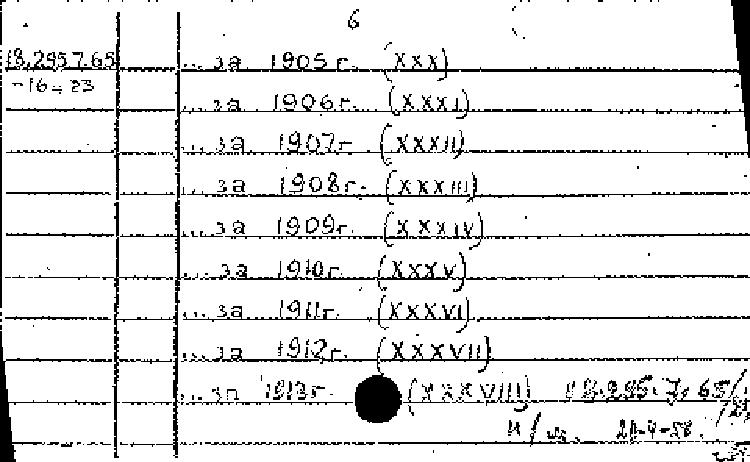 6
18.295.7.65 ... за 1905 г. (XXX)
-16-23
... за 1906 г. (XXXI)
... за 1907 г. (XXXII)
... за 1908 г. (XXXIII)
... за 1909 г. (XXXIV)
... за 1910 г. (XXXV)
... за 1911 г. (XXXVI)
... за 1912 г. (XXXVII)
... за 1913 г. (XXXVIII) 18.295.7.65/